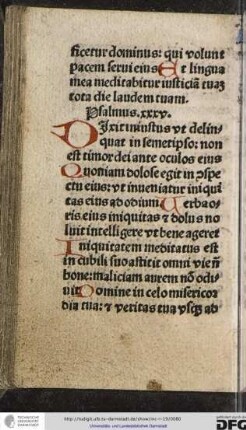 ficetur dominus: qui volunt
pacem serui eius Et lingua
mea meditabitur iusticiā tuaꝫ
tota die laudem tuam.
Psalmus. xxxv.
DIxit iniustus vt delin-
quat in semetipso: non
est timor dei ante oculos eius
Quoniam dolose egit in ↄspe-
ctu eius: vt inueniatur iniqui-
tas eius ad odium Verba o-
ris eius iniquitas ⁊ dolus no
luit intelligere vt bene ageret
Iniquitatem meditatus est
in cubili suo astitit omni vie nō
bone: maliciam autem nō odi-
uit Domine in celo misericor
dia tua: ⁊ veritas tua vsqꝫ ad